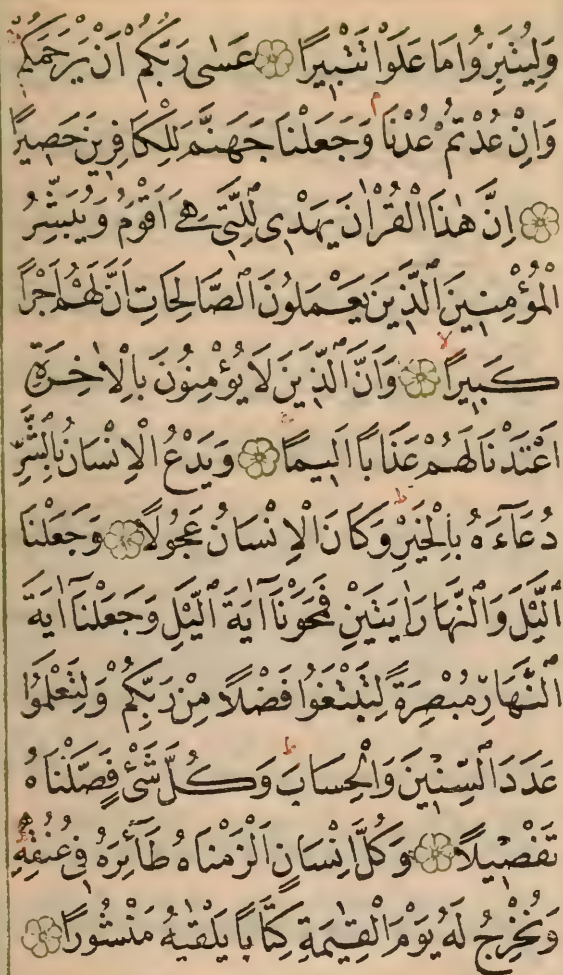 وَلِيُتَبِّرُوا مَا عَلَوْا تَتْبِيرًا ۝ عَسٰى رَبُّكُمْ اَنْ يَرْحَمَكُمْ
وَاِنْ عُدْتُمْ عُدْنَا وَجَعَلْنَا جَهَنَّمَ لِلْكَافِرِينَ حَصِيرًا
۝ اِنَّ هٰذَا الْقُرْاٰنَ يَهْدِى لِلَّتِى هِىَ اَقْوَمُ وَيُبَشِّرُ
الْمُؤْمِنِينَ الَّذِينَ يَعْمَلُونَ الصَّالِحَاتِ اَنَّ لَهُمْ اَجْرًا
كَبِيرًا ۝ وَاَنَّ الَّذِينَ لَا يُؤْمِنُونَ بِالْاٰخِرَةِ
اَعْتَدْنَا لَهُمْ عَذَابًا اَلِيمًا ۝ وَيَدْعُ الْاِنْسَانُ بِالشَّرِّ
دُعَٓاءَهُ بِالْخَيْرِ وَكَانَ الْاِنْسَانُ عَجُولًا ۝ وَجَعَلْنَا
الَّيْلَ وَالنَّهَارَ اٰيَتَيْنِ فَمَحَوْنَٓا اٰيَةَ الَّيْلِ وَجَعَلْنَٓا اٰيَةَ
النَّهَارِ مُبْصِرَةً لِتَبْتَغُوا فَضْلًا مِنْ رَبِّكُمْ وَلِتَعْلَمُوا
عَدَدَ السِّنِينَ وَالْحِسَابَ وَكُلَّ شَىْءٍ فَصَّلْنَاهُ
تَفْصِيلًا ۝ وَكُلَّ اِنْسَانٍ اَلْزَمْنَاهُ طَٓائِرَهُ فِى عُنُقِهِ
وَنُخْرِجُ لَهُ يَوْمَ الْقِيٰمَةِ كِتَابًا يَلْقٰيهُ مَنْشُورًا ۝